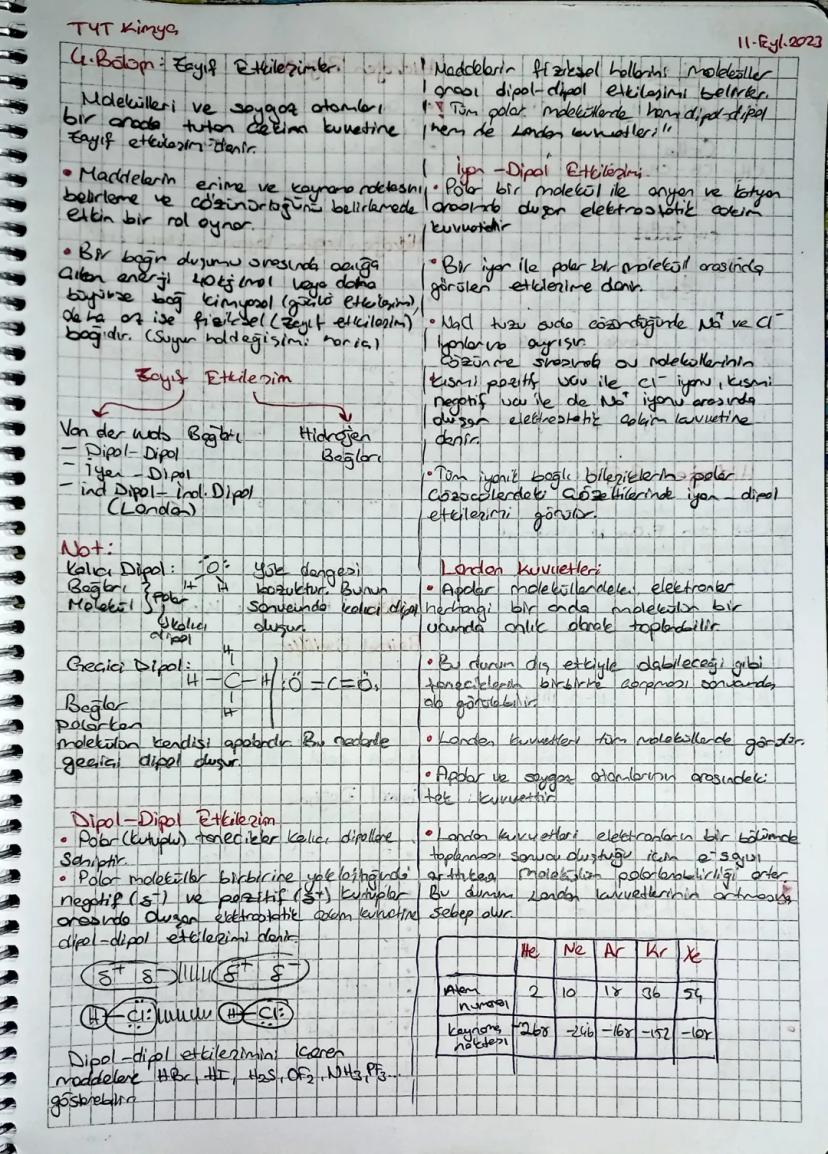 TYT Kimya
11.Eyl.2023
4.Bölüm: Zayıf Etkileşimler
Molekülleri ve soygaz atomları
bir arada tutan çekim kuvvetine
zayıf etkileşim denir.
• Maddelerin erime ve kaynama noktasını
belirleme ve çözünürlüğünü belirlemede
etkin bir rol oynar.
• Bir bağın oluşumu sırasında açığa
çıkan enerji 40kj/mol veya daha
büyükse bağ kimyasal (güçlü etkileşim),
daha az ise fiziksel (zayıf etkileşim)
bağıdır. (Suyun hal değişimi hariç)
Zayıf Etkileşim
Van der wals Bağları
- Dipol-Dipol
- İyon - Dipol
- ind Dipol- ind. Dipol
(London)
Hidrojen
Bağları
Not:
Kalıcı Dipol:
Bağları
Molekül
Polar
kalıcı
dipol
:Ö:
H H
Yük dengesi
bozuktur. Bunun
sonucunda kalıcı dipol
oluşur.
Geçici Dipol:
H
H-C-H
H
:Ö=C=Ö:
Bağlar
polarken
molekülün kendisi apolardır. Bu nedenle
geçici dipol oluşur.
Dipol-Dipol Etkileşim
• Polar (kutuplu) tanecikler kalıcı dipollere
sahiptir.
• Polar moleküller birbirine yaklaştığında
negatif (δ⁻) ve pozitif (δ⁺) kutuplar
arasında oluşan elektrostatik çekim kuvvetine
dipol-dipol etkileşimi denir.
δ⁺ δ⁻ δ⁺ δ⁻
H-Cl: H-Cl:
Dipol-dipol etkileşimini içeren
maddelere HBr, HI, H₂S, OF₂, NH₃, PF₃...
gösterebilir
Maddelerin fiziksel hallerini moleküller
arası dipol-dipol etkileşimi belirler.
! Tüm polar moleküllerde hem dipol-dipol
hem de London kuvvetleri "
İyon -Dipol Etkileşimi
• Polar bir molekül ile anyon ve katyon
arasında oluşan elektrostatik çekim
kuvvetidir
• Bir iyon ile polar bir molekül arasında
görülen etkileşime denir.
• NaCl tuzu suda çözündüğünde Na⁺ ve Cl⁻
iyonlarına ayrışır.
Çözünme sırasında su moleküllerinin
kısmi pozitif ucu ile Cl⁻ iyonu, kısmi
negatif ucu ile de Na⁺ iyonu arasında
oluşan elektrostatik çekim kuvvetine
denir.
• Tüm iyonik bağlı bileşiklerin polar
çözücülerdeki çözeltilerinde iyon-dipol
etkileşimi görülür.
London Kuvvetleri
• Apolar moleküllerdeki elektronlar
herhangi bir anda molekülün bir
ucunda anlık olarak toplanabilir
• Bu durum dış etkiyle olabileceği gibi
taneciklerin birbirine çarpması sonucunda
da görülebilir.
• London kuvvetleri tüm moleküllerde görülür.
• Apolar ve soygaz atomlarının arasındaki
tek kuvvettir
• London kuvvetleri elektronların bir bölümde
toplanması sonucu oluştuğu için e⁻ sayısı
arttıkça molekülün polarlanabilirliği artar
Bu durum London kuvvetlerinin artmasına
sebep olur.
He Ne Ar Kr Xe
Atom numarası 2 10 18 36 54
Kaynama noktası -268 -246 -168 -152 -108